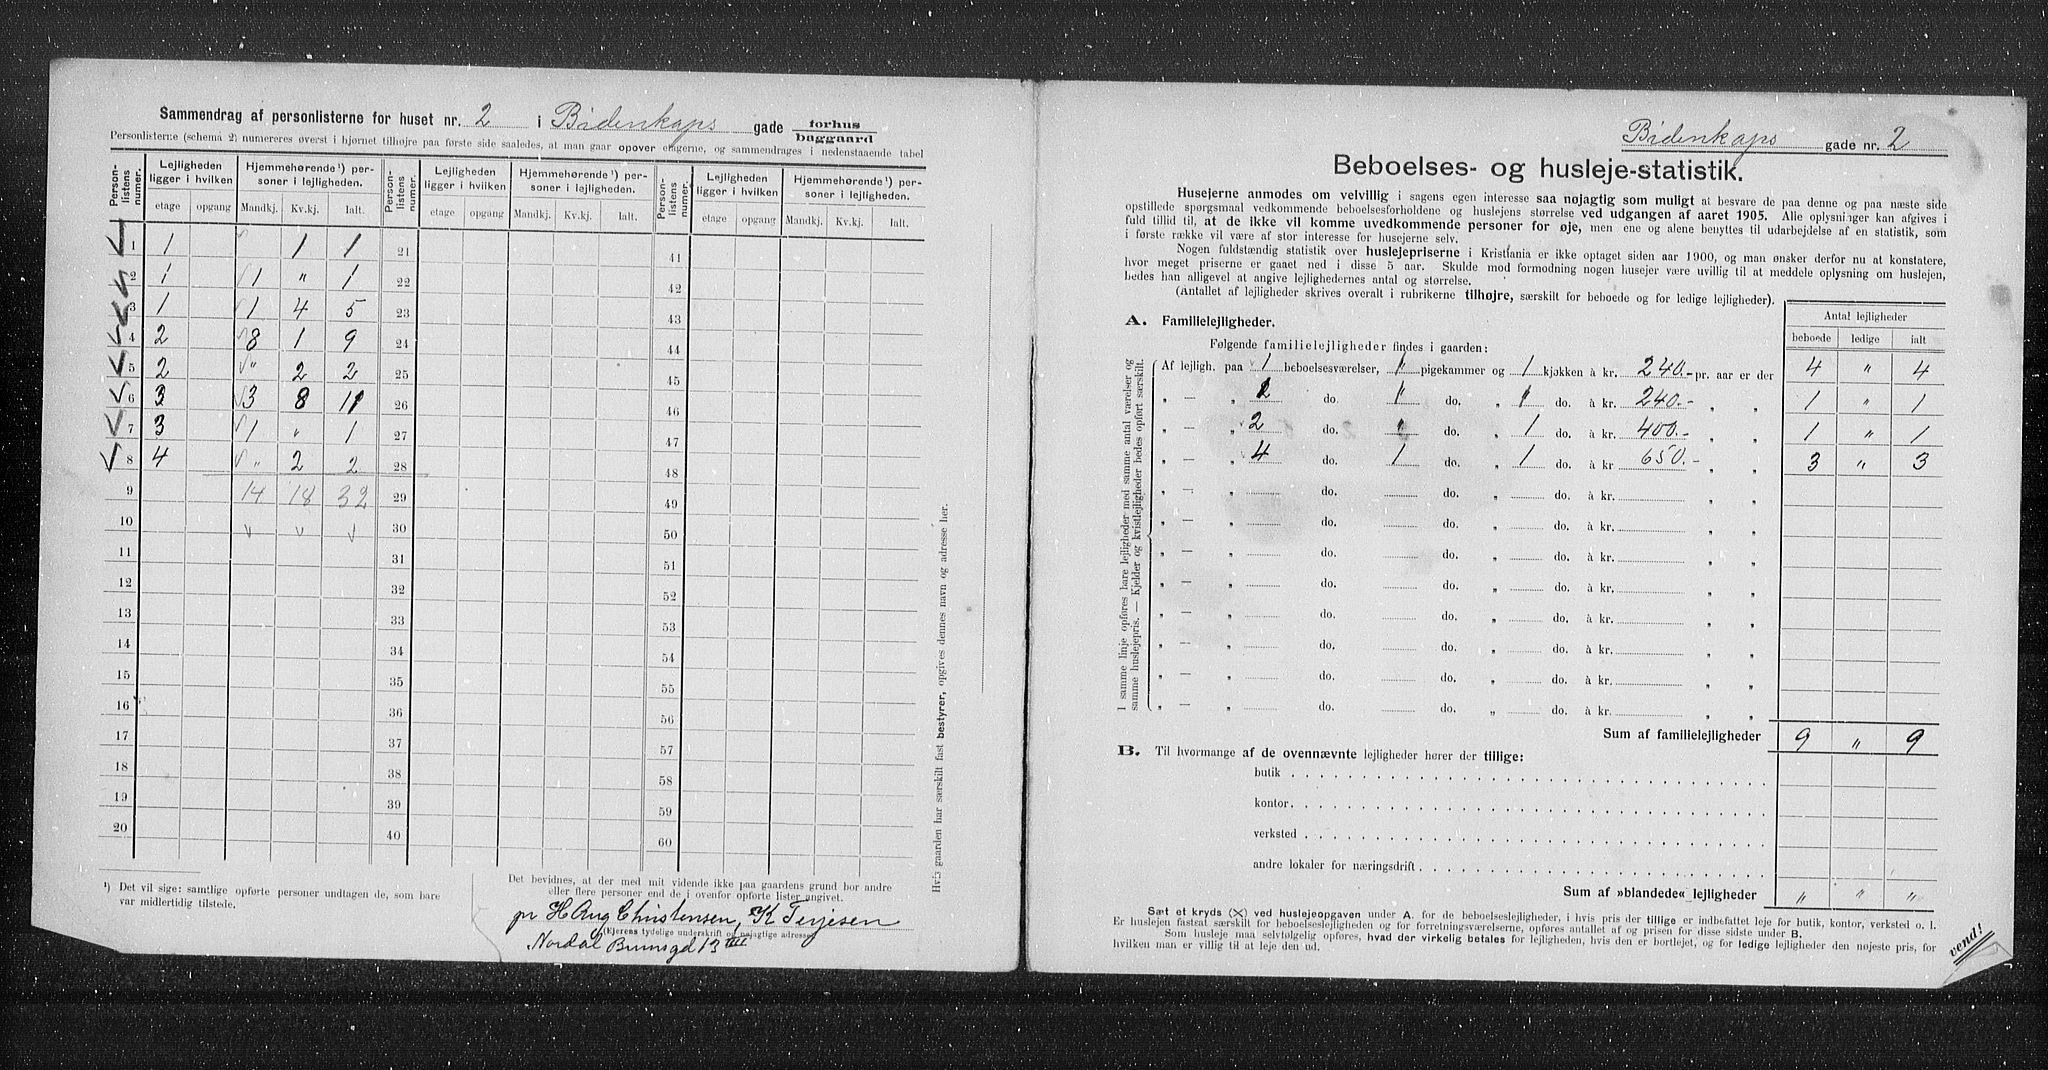 Sammendrag af personlisterne for huset nr. 2 i Bidenkaps gade forhus baggaard
Personlisterne (schema 2) numereres øverst i hjørnet tilhøjre paa første side saaledes, at man gaar opover etagerne, og sammendrages i nedenstaaende tabel
Personlistens numer. Lejligheden ligger i hvilken etage opgang Hjemmehørende ¹) personer i lejligheden. Mandkj. Kv.kj. Ialt.
Personlistens numer. Lejligheden ligger i hvilken etage opgang Hjemmehørende ¹) personer i lejligheden. Mandkj. Kv.kj. Ialt.
Personlistens numer. Lejligheden ligger i hvilken etage opgang Hjemmehørende ¹) personer i lejligheden. Mandkj. Kv.kj. Ialt.
1 1 1 1 21 41
2 1 1 " 1 22 42
3 1 1 4 5 23 43
4 2 8 1 9 24 44
5 2 " 2 2 25 45
6 3 3 8 11 26 46
7 3 1 " 1 27 47
8 4 " 2 2 28 48
9 14 18 32 29 49
10 30 50
11 31 51
12 32 52
13 33 53
14 34 54
15 35 55
16 36 56
17 37 57
18 38 58
19 39 59
20 40 60
¹) Det vil sige: samtlige opførte personer undtagen de, som bare
var midlertidig tilstede.
Det bevidnes, at der med mit vidende ikke paa gaardens grund bor andre
eller flere personer end de i ovenfor opførte lister angivet.
pr H Aug Christensen, K Terjesen
(Ejerens tydelige underskrift og nøjagtige adresse)
Nordal Brunsgd 13 III
Hvis gaarden har særskilt fast bestyrer, opgives dennes navn og adresse her.
Bidenkaps gade nr. 2
Beboelses- og husleje-statistik.
Husejerne anmodes om velvillig i sagens egen interesse saa nøjagtig som muligt at besvare de paa denne og paa næste side
opstillede spørgsmaal vedkommende beboelsesforholdene og huslejens størrelse ved udgangen af aaret 1905. Alle oplysninger kan afgives i
fuld tillid til, at de ikke vil komme uvedkommende personer for øje, men ene og alene benyttes til udarbejdelse af en statistik, som
i første række vil være af stor interesse for husejerne selv.
Nogen fuldstændig statistik over huslejepriserne i Kristiania er ikke optaget siden aar 1900, og man ønsker derfor nu at konstatere,
hvor meget priserne er gaaet ned i disse 5 aar. Skulde mod formodning nogen husejer være uvillig til at meddele oplysning om huslejen,
bedes han alligevel at angive lejlighedernes antal og størrelse.
(Antallet af lejligheder skrives overalt i rubrikerne tilhøjre, særskilt for beboede og for ledige lejligheder).
Antal lejligheder
beboede ledige ialt
A. Familielejligheder.
Følgende familielejligheder findes i gaarden:
I samme linje opføres bare lejligheder med samme antal værelser og
samme huslejepris. — Kjelder og kvistlejligheder bedes opført særskilt.
Af lejligh. paa 1 beboelsesværelser, " pigekammer og 1 kjøkken à kr. 240.- pr. aar er der 4 " 4
" — " 1 do. " do. " " do. à kr. 240.- " " 1 " 1
" — " 2 do. " do. " 1 do. à kr. 400.- " " 1 " 1
" — " 4 do. 1 do. " 1 do. à kr 650.- " " 3 " 3
" — " do. do. " do. à kr. " "
" — " do. do. " do. à kr. " "
" — " do. do. " do. à kr. " "
" — " do. do. " do. à kr. " "
" — " do. do. " do. à kr. " "
" — " do. do. " do. à kr. " "
" — " do. do. " do. à kr. " "
" — " do. do. " do. à kr. " "
Sum af familielejligheder 9 " 9
B. Til hvormange af de ovennævnte lejligheder hører der tillige:
butik
kontor
verksted
andre lokaler for næringsdrift
Sum af »blandede« lejligheder " " "
Sæt et kryds (X) ved huslejeopgaven under A. for de beboelseslejligheder, i hvis pris der tillige er indbefattet leje for butik, kontor, verksted o. l.
Er huslejen fastsat særskilt for beboelseslejligheden og for forretningsværelserne, opføres antallet af og prisen for disse sidste under B.
Som husleje maa selvfølgelig opføres, hvad der virkelig betales for lejligheden, hvis den er bortlejet, og for ledige lejligheder den nøjeste pris, for
hvilken man er villig til at leje den ud.
vend!